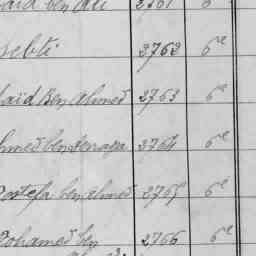 aïd ben Ali 2761 6e
sebti 2762 6e
aïd Ben Ahmed 2763 6e
hmed ben 2764 6e
ostefa ben Ahmed 2765 6e
ohamed ben 2766 6e